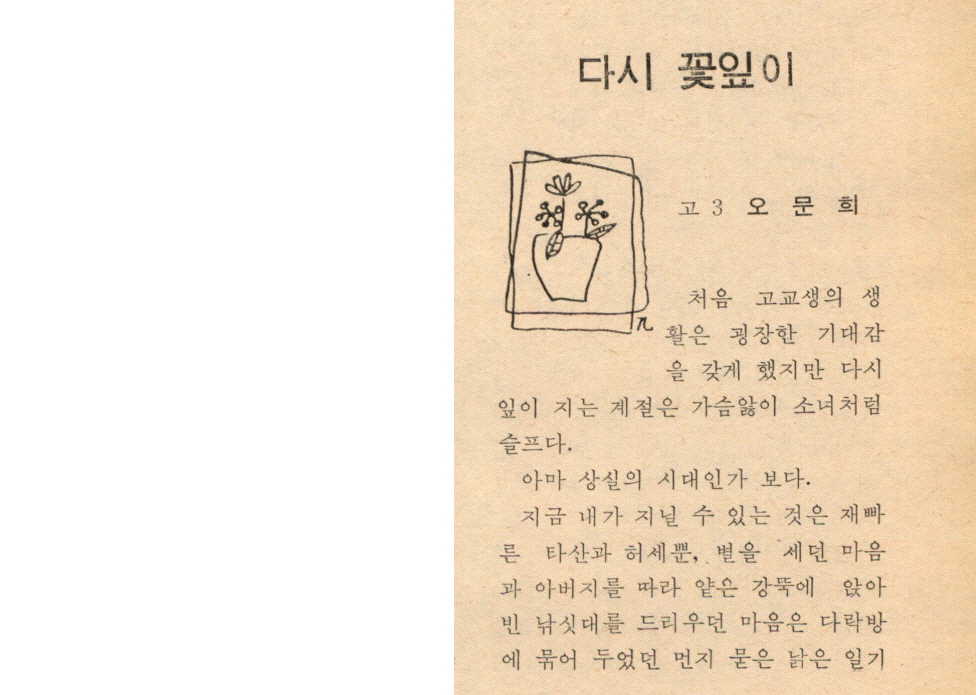 다시 꽃잎이
고 3 오 문 희
처음 고교생의 생
활은 굉장한 기대감
을 갖게 했지만 다시
잎이 지는 계절은 가슴앓이 소녀처럼
슬프다.
아마 상실의 시대인가 보다.
지금 내가 지닐 수 있는 것은 재빠
른 타산과 허세뿐, 별을 세던 마음
과 아버지를 따라 얕은 강뚝에 앉아
빈 낚싯대를 드리우던 마음은 다락방
에 묶어 두었던 먼지 묻은 낡은 일기